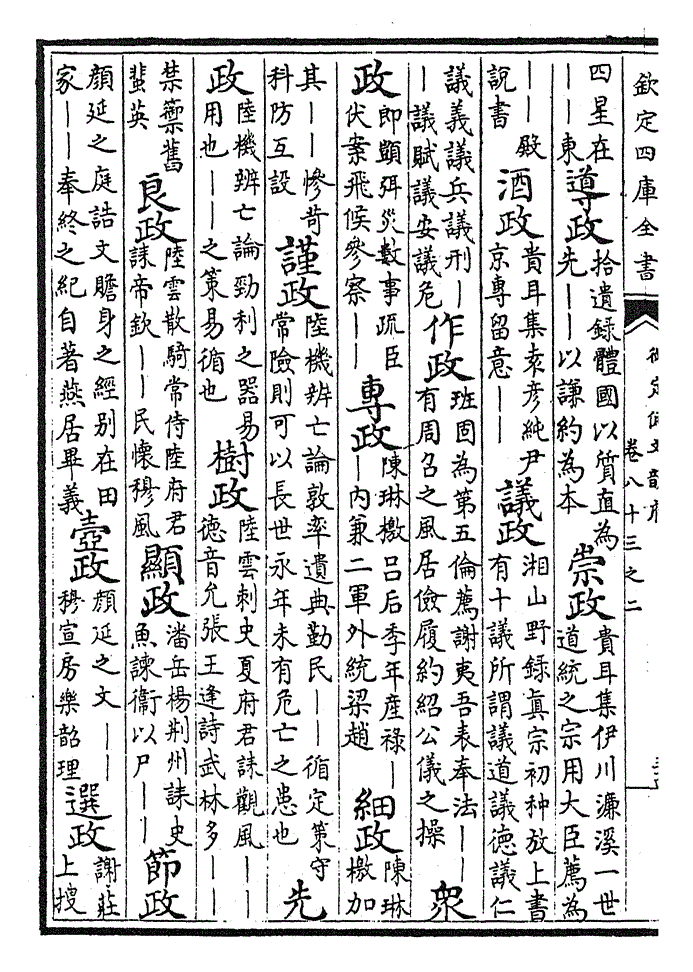 欽定四庫全書
御定佩文韻府
卷八十三之二
四星在
——東
導政
拾遺録體國以質直為
先——以謙約為本
崇政
貴耳集伊川濂溪一世
道統之宗用大臣薦為
——殿
說書
酒政
貴耳集袁彦純尹
京専留意——
議政
湘山野録真宗初种放上書
有十議所謂議道議徳議仁
議義議兵議刑—
—議賦議安議危
作政
班固為第五倫薦謝夷吾表奉法——
有周召之風居儉履約紹公儀之操
衆
政
即顗弭災數事疏臣
伏案飛候參察——
專政
陳琳檄吕后季年産禄—
—内兼二軍外統梁趙
細政
陳琳
檄加
其——慘苛
科防互設
謹政
陸機辨亡論敦率遺典勤民——循定策守
常險則可以長世永年未有危亡之患也
先
政
陸機辨亡論勁利之器易
用也——之策易循也
樹政
陸雲刺史夏府君誄觀風——
徳音允張王逢詩武林多——
禁藥舊
蜚英
良政
陸雲散騎常侍陸府君
誄帝欽——民懷穆風
顯政
潘岳楊荆州誄史
魚諫衞以尸——
節政
顔延之庭誥文贍身之經别在田
家——奉終之紀自著燕居畢義
壼政
顔延之文——
穆宣房樂韶理
選政
謝莊
上搜